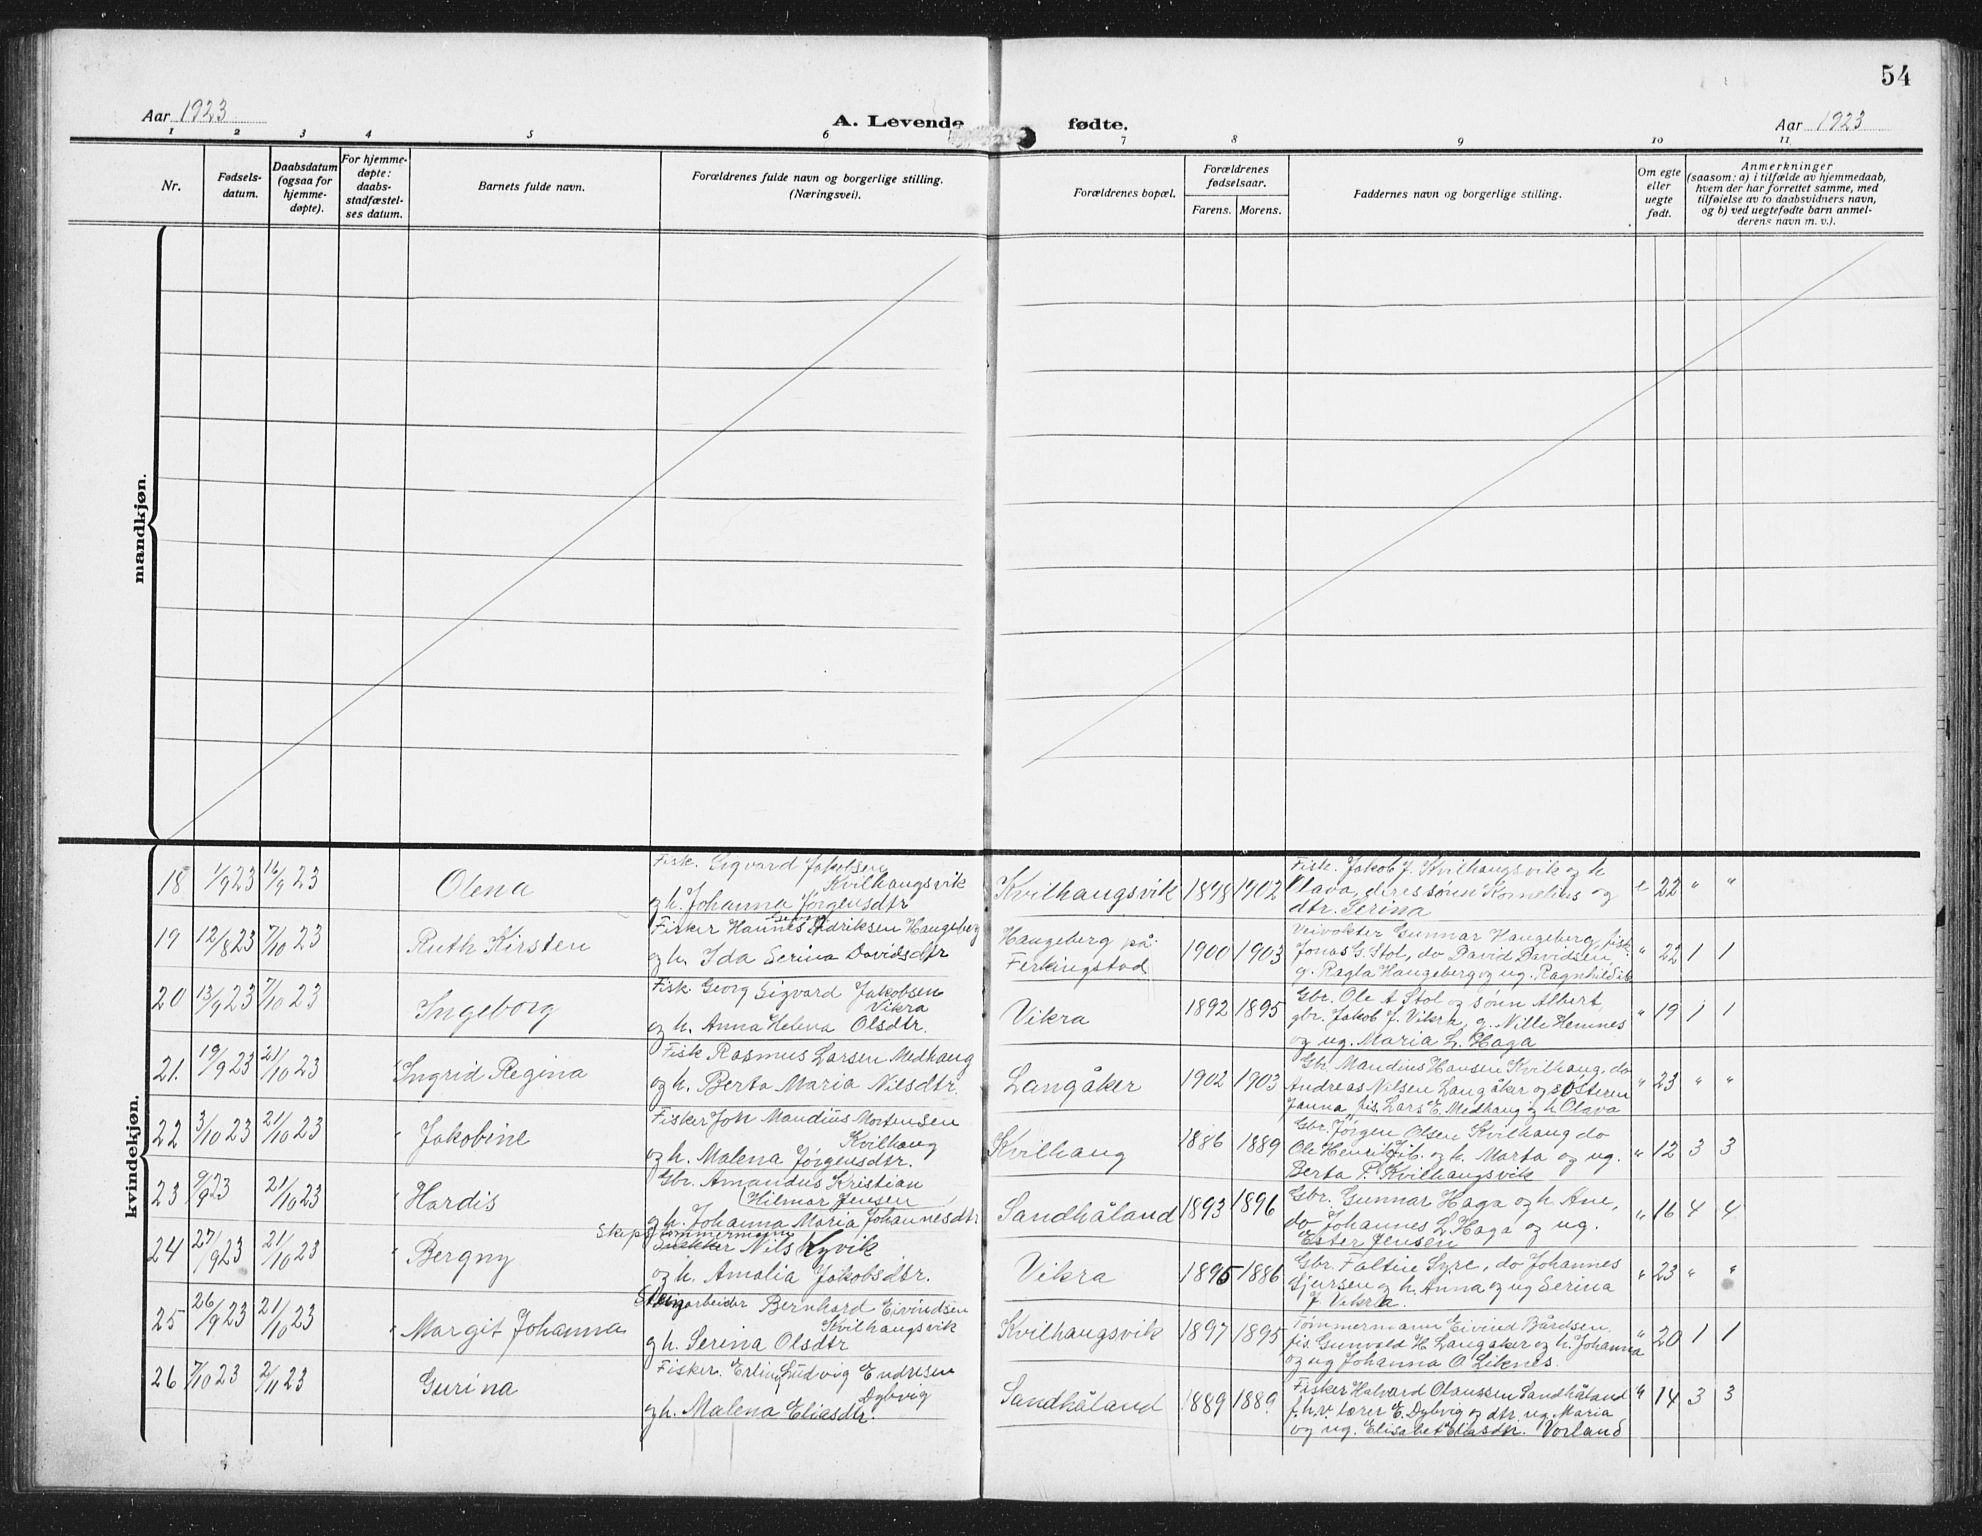 54
Aar 1923
A. Levende fødte.
Aar 1923
1 2 3 4 5 6 7 8 9 10 11
Nr.
Fødsels-
datum.
Daabsdatum
(ogsaa for
hjemme-
døpte).
For hjemme-
døpte:
daabs-
stadfæstel-
ses datum.
Barnets fulde navn.
Forældrenes fulde navn og borgerlige stilling.
(Næringsvei).
Forældrenes bopæl.
Forældrenes
fødselsaar.
Farens. Morens.
Faddernes navn og borgerlige stilling.
Om egte
eller
uegte
født.
Anmerkninger
(saasom: a) i tilfælde av hjemmedaab,
hvem der har forrettet samme, med
tilføielse av to daabsvidners navn,
og b) ved uegtefødte barn anmel-
derens navn m. v.).
mandkjøn.
kvindekjøn.
18 1/9 23 16/9 23 Olena
Fisk. Sigvard Jakobsen
Kvilhaugsvik
og h. Johanna Jørgensdtr
Kvilhaugsvik 1898 1902
Fisk. Jakob J. Kvilhaugsvik og h
Olava, deres sønn Kornelius og
dtr. Serina
e 22 " "
19 12/8 23 7/10 23 Ruth Kirsten
Fisker Hannes Fredriksen Haugeberg
og h. Ida Serina Davidsdtr
Haugeberg på
Ferkingstad
1900 1903
Veivokter Gunnar Haugeberg, fisk.
Jonas G. Stol, do David Davidsen,
g. Ragla Haugeberg og ug. Ragnhild
" 22 1 1
20 13/9 23 7/10 23 Ingeborg
Fisk Georg Sigvard Jakobsen
Vikra
og h. Anna Helena Olsdtr.
Vikra 1892 1895
Gbr. Ole A Stol og sønn Albert
gbr. Jakob J. Vikra, g. Nille Hemnes
og ug. Maria L. Haga
" 19 1 1
21. 19/9 23 21/10 23 Ingrid Regina
Fisk Rasmus Larsen Medhaug
og h. Berta Maria Nilsdtr.
Langåker 1902 1903
Gbr. Mandius Hansen Kvilhaug, do
Andreas Nilsen Langåker og søsteren
Janna, fis. Lars E. Medhaug og h. Olava
" 23 " "
22 3/10 23 21/10 23 Jakobine
Fisker Joh Mandius Mortensen
Kvilhaug
og h. Malena Jørgensdtr.
Kvilhaug 1886 1889
Gbr. Jørgen Olsen Kvilhaug do
Ole Henrik Jib. og h. Marta og ug.
Berta P. Kvilhaugsvik
" 12 3 3
23 9/9 23 21/10 23 Hardis
Gbr. Amandus Kristian
Hilmar Jensen
og h. Johanna Maria Johannesdtr
Sandhåland 1893 1896
Gbr. Gunnar Haga og h. Ane,
do Johannes L. Haga og ug.
Ester Jensen
" 16 4 4
24 27/9 23 21/10 23 Bergny
Skipstømmermann
Snekker Nils Kyvik
og h. Amalia Jakobsdtr.
Vikra 1895 1886
Gbr. Faltin Syre, do Johannes
Sjursen og h. Anna og ug Serina
J. Vikra.
" 23 " "
25 26/9 23 21/10 23 Margit Johanna
arbeider Bernhard Eivindsen
Kvilhaugsvik
og h. Serina Olsdtr
Kvilhaugsvik 1897 1895
Tømmermann Eivind Bårdsen,
fis. Gunvald H. Langåker og h. Johanna
og ug Johanna O. Liknes.
" 20 1 1
26 7/10 23 2/11 23 Gurina
Fisker. Erling Ludvig Endresen
Dybvig
og h. Malena Eliasdtr.
Sandhåland 1889 1889
Fisker Halvard Olaussen Sandhåland
f.h.v. lærer E. Dybvig og dtr. ug. Maria
og ug. Elisabet Eliasdtr. Vorland
" 14 3 3